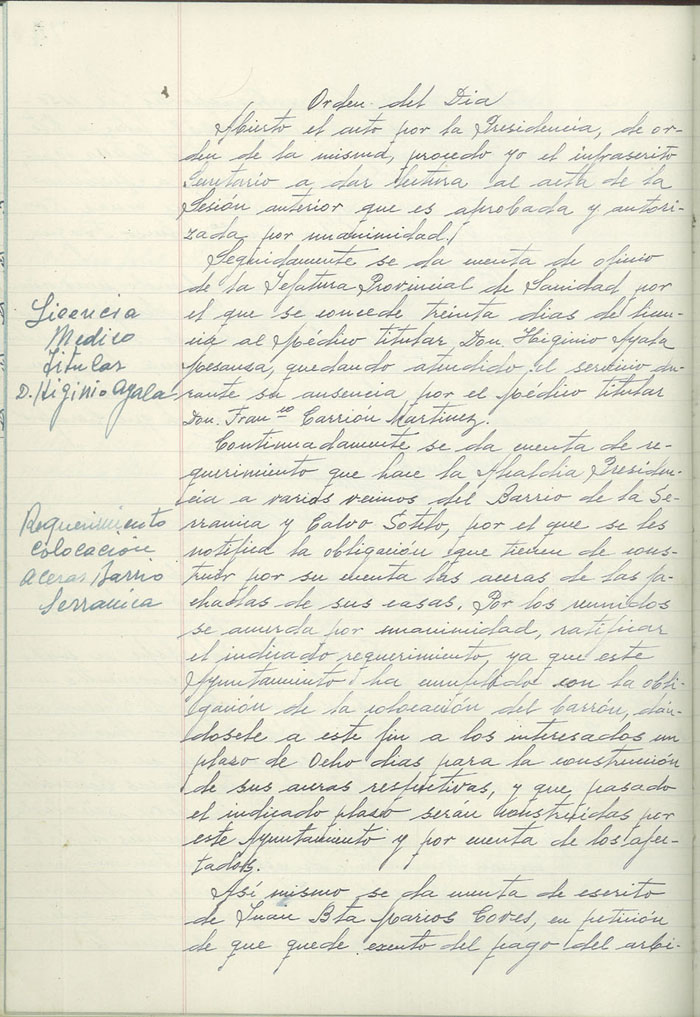 Orden del Dia
Abierto el acto por la Presidencia, de or-
den de la misma, procedo yo el infrascrito
Secretario a dar lectura al acta de la
Sesión anterior que es aprobada y autori-
zada por unanimidad.
Seguidamente se da cuenta de oficio
de la Jefatura Provincial de Sanidad por
el que se concede treinta dias de licen-
cia al Médico titular Don Higinio Ayala
quedando atendido el servicio du-
rante su ausencia por el Médico titular
Don Fran.co Carrión Martinez.
Continuadamente se da cuenta de re-
querimiento que hace la Alcaldia Presiden-
cia a varios vecinos del Barrio de la Se-
rranica y Calvo Sotelo, por el que se les
notifica la obligación que tienen de cons-
truir por su cuenta las aceras de las fa-
chadas de sus casas. Por los reunidos
se acuerda por unanimidad, ratificar
el indicado requerimiento, ya que este
Ayuntamiento ha cumplido con la obli-
gación de la colocación del Carrón, dán-
dosele a este fin a los interesados un
plazo de Ocho dias para la construcción
de sus aceras respectivas, y que pasado
el indicado plazo serán construidas por
este Ayuntamiento y por cuenta de los afec-
tados.
Así mismo se da cuenta de escrito
de Juan Bta Marios Cores, en petición
de que quede exento del pago del arbi-
Licencia
Medico
titular
D. Higinio Ayala
Requerimiento
colocación
aceras Barrio
Serranica